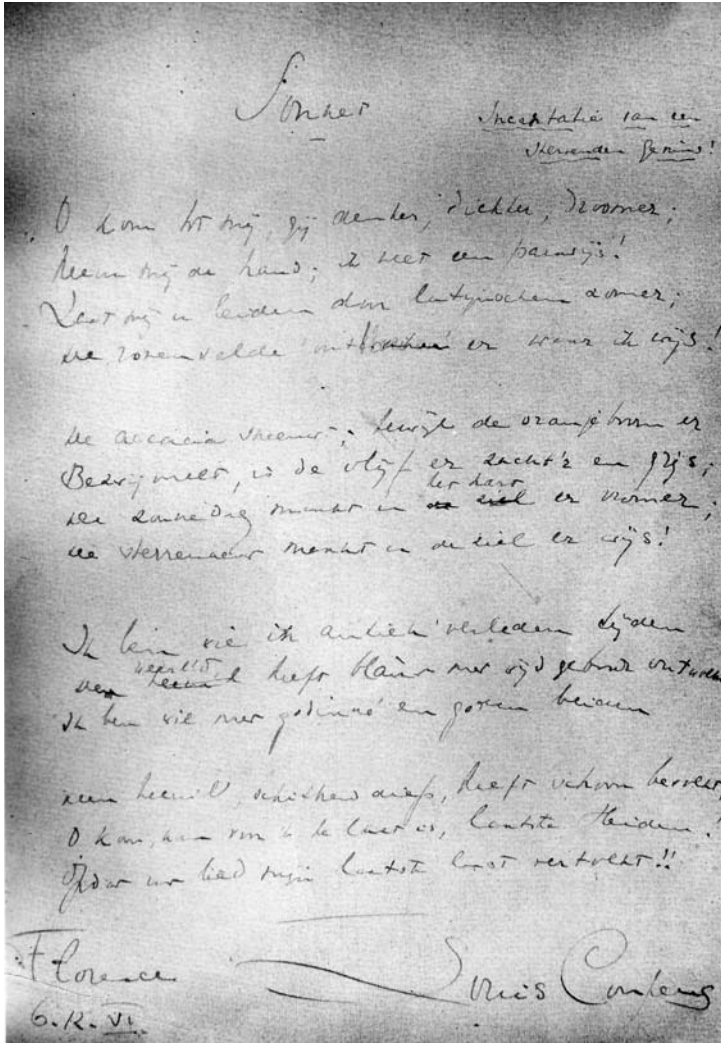 Sonnet
Incantatie van een
stervenden Genius!
O kom tot mij, gij denker, dichter, droomer;
Neem mij de hand; ik weet een paradijs!
Laat mij u leiden door Latijnschen zomer;
De rozen er waar ik wijs!
De accacia sneeuwt; terwijl de oranjeboom er
Bezwijmelt, is de olijf er zacht'r en grijs;
De zonnedag maakt u de ziel het hart er vromer;
De sterrenacht maakt u de ziel er wijs!
Ik ben wie in antiek verleden tijden
wereld heeft blauw met wijd gebaar
Ik ben wie met godinne' en goden beiden
heeft schoon bevolkt,
O kom, kom voor 't te laat is, laatste Heiden!
Opdat uw lied mijn laatste lust vertolkt!!
Florence
6.12.VI.
Louis Couperus